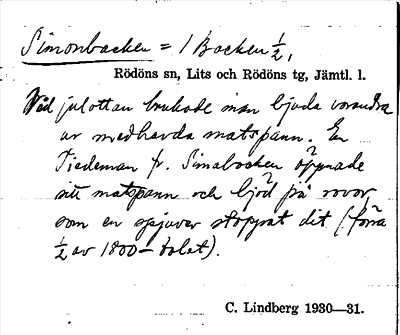 Simonbacken = 1 Backen ½,
Rödöns sn, Lits och Rödöns tg, Jämtl. l.
Vid julottan brukade man bjuda varandra
av medhavda matspann. En
Tiedeman fr. Simabacken öppnade
sitt matspann och bjöd på rovor,
som en spjuver stoppat dit (förra
½ av 1800-talet).
C. Lindberg 1930—31.